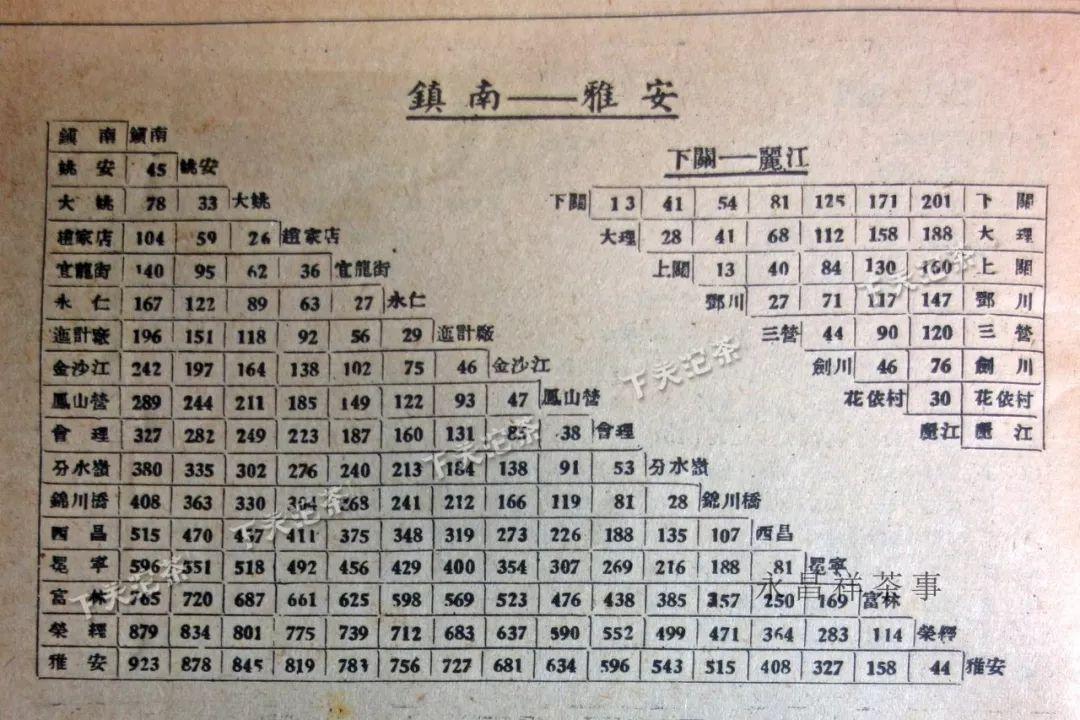 鎮南——雅安
鎮南 鎮南
姚安 45 姚安
大姚 78 33 大姚
趙家店 104 59 26 趙家店
官龍街 140 95 62 36 官龍街
永仁 167 122 89 63 27 永仁
迤計廠 196 151 118 92 56 29 迤計廠
金沙江 242 197 164 138 102 75 46 金沙江
鳳山營 289 244 211 185 149 122 93 47 鳳山營
會理 327 282 249 223 187 160 131 85 38 會理
分水嶺 380 335 302 276 240 213 184 138 91 53 分水嶺
錦川橋 408 363 330 304 268 241 212 166 119 81 28 錦川橋
西昌 515 470 437 411 375 348 319 273 226 188 135 107 西昌
冕寧 596 551 518 492 456 429 400 354 307 269 216 188 81 冕寧
富林 765 720 687 661 625 598 569 523 476 438 385 357 250 169 富林
榮經 879 834 801 775 739 712 683 637 590 552 499 471 364 283 114 榮經
雅安 923 878 845 819 783 756 727 681 634 596 543 515 408 327 158 44 雅安
下關——麗江
下關 13 41 54 81 125 171 201 下關
大理 28 41 68 112 158 188 大理
上關 13 40 84 130 160 上關
鄧川 27 71 117 147 鄧川
三營 44 90 120 三營
劍川 46 76 劍川
花依村 30 花依村
麗江 麗江
下关沱茶
下关沱茶
下关沱茶
下关沱茶
下关沱茶
永昌祥茶事